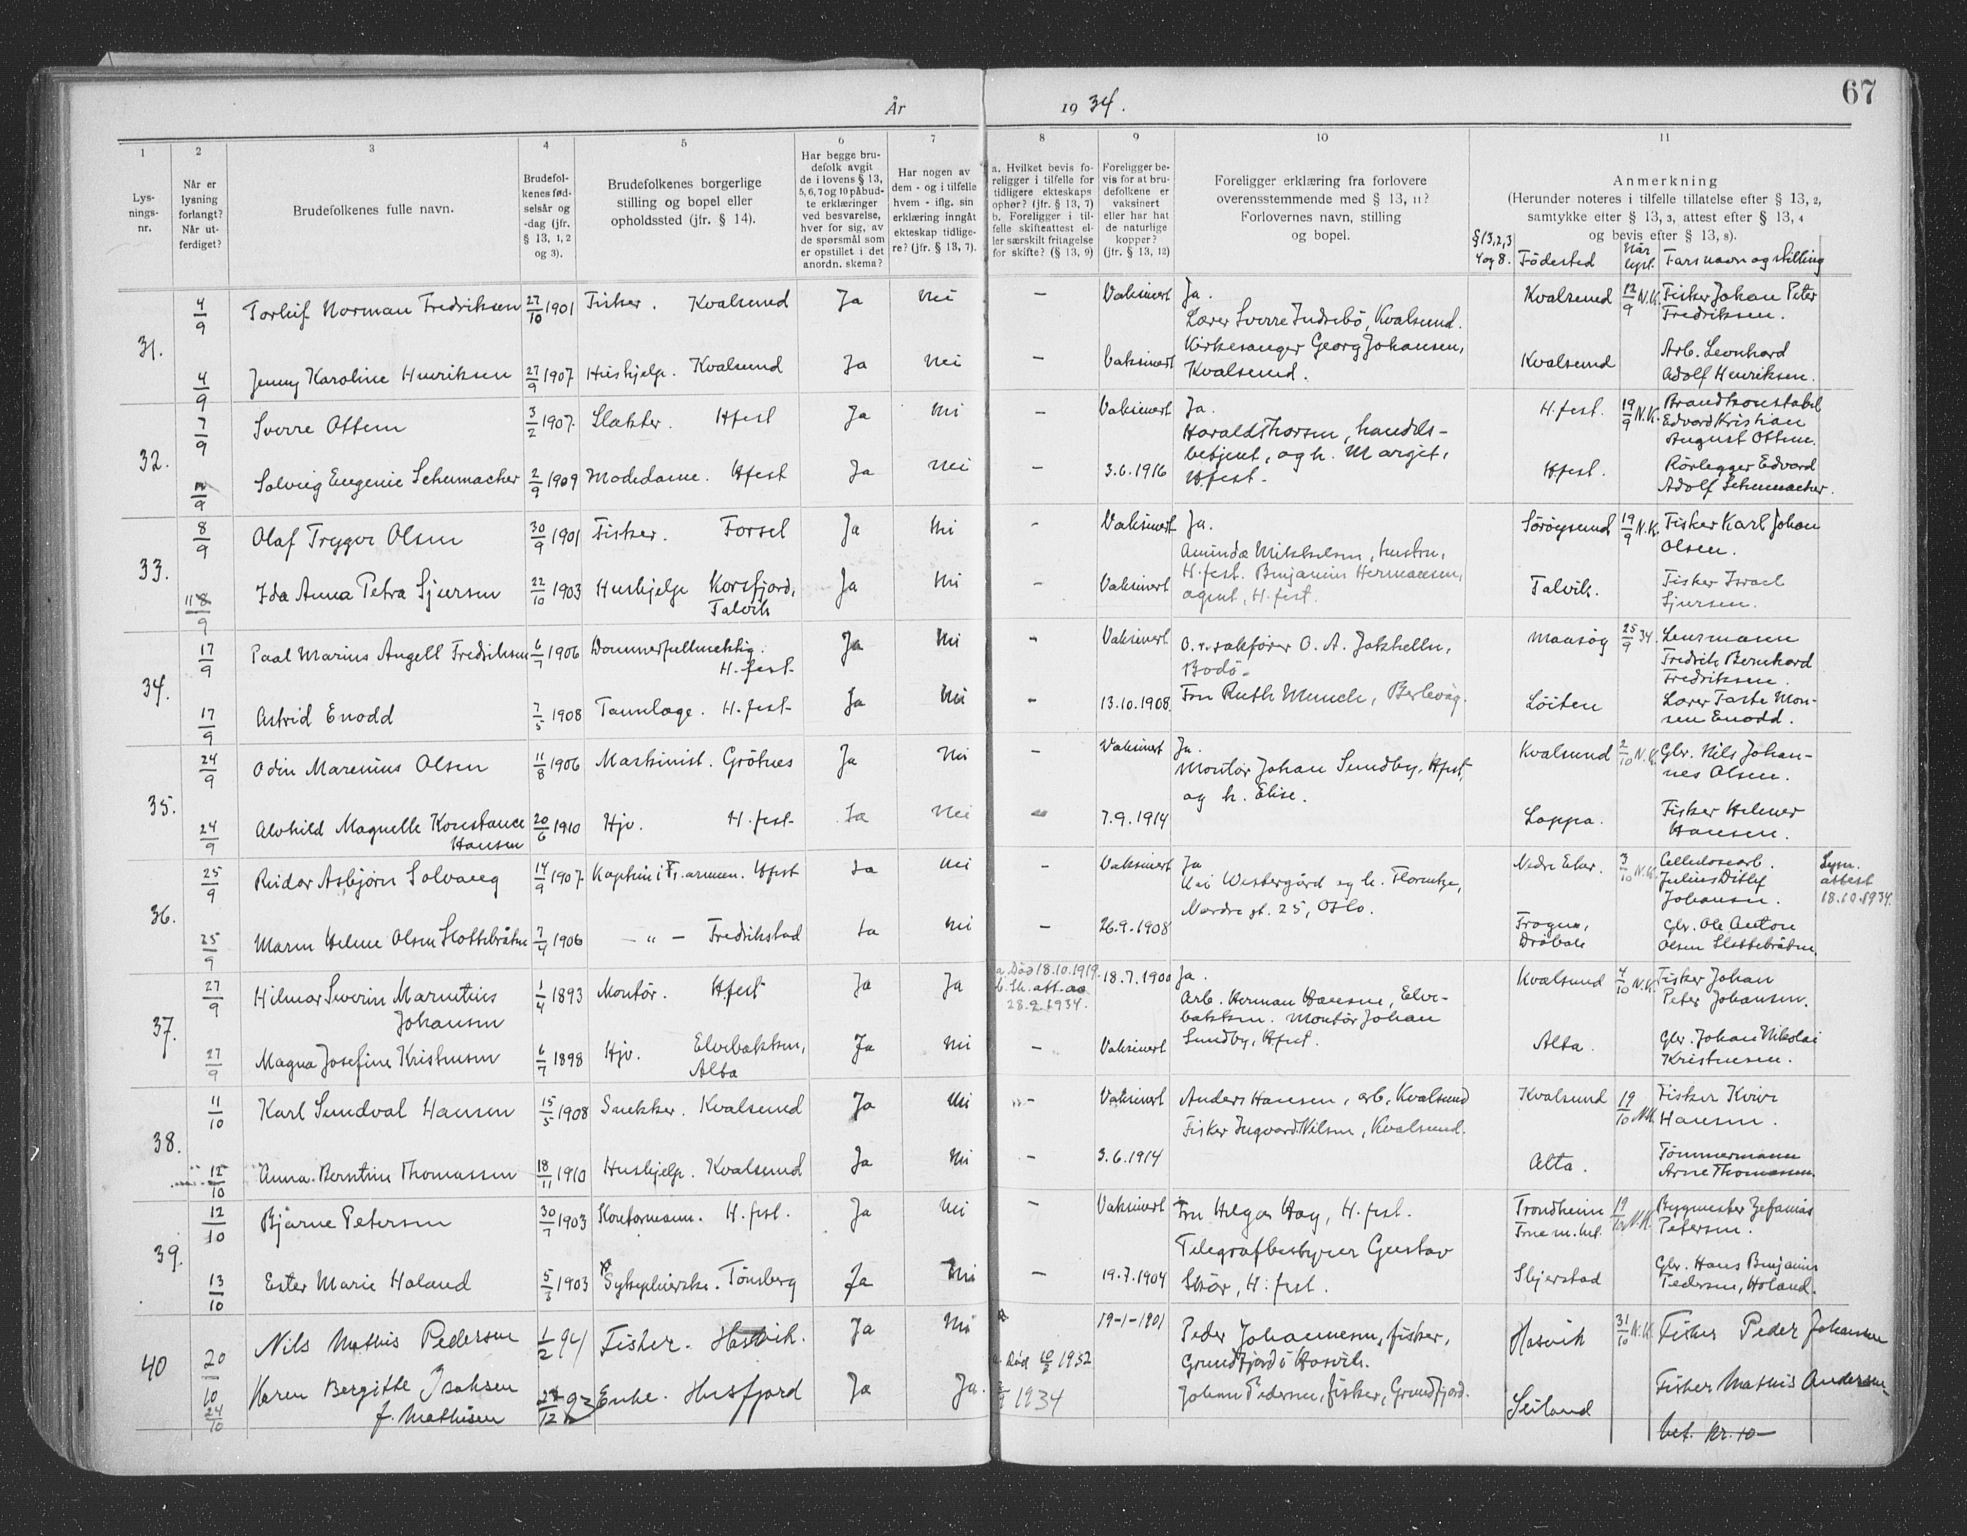 67
År 1934.
1 2 3 4 5 6 7 8 9 10 11
Lysningsnr.
Når er lysning forlangt? Når utferdiget?
Brudefolkenes fulle navn.
Brudefolkenes fødselsår og -dag (jfr. § 13, 1, 2 og 3).
Brudefolkenes borgerlige stilling og bopel eller opholdssted (jfr. § 14).
Har begge brudefolk avgit de i lovens § 13, 5, 6, 7 og 10 påbudte erklæringer ved besvarelse, hver for sig, av de spørsmål som er opstillet i det anordn. skema?
Har nogen av dem - og i tilfelle hvem - iflg. sin erklæring inngått ekteskap tidligere? (jfr. § 13, 7).
a. Hvilket bevis foreligger i tilfelle for tidligere ekteskaps ophør? (jfr. § 13, 7) b. Foreligger i tilfelle skifteattest eller særskilt fritagelse for skifte? (§ 13, 9)
Foreligger bevis for at brudefolkene er vaksinert eller har hat de naturlige kopper? (jfr. § 13, 12)
Foreligger erklæring fra forlovere overensstemmende med § 13, 11? Forlovernes navn, stilling og bopel.
Anmerkning
(Herunder noteres i tilfelle tillatelse efter § 13, 2, samtykke efter § 13, 3, attest efter § 13, 4 og bevis efter § 13, 8).
§ 13,2,3 4 og 8. Fødested Når lyst. Farsnavn og stilling
31.
4/9 Torleif Norman Fredriksen 27/10 1901 Fisker. Kvalsund Ja Nei — Vaksinert Ja. Lærer Sverre Indrebö, Kvalsund. Kvalsund 12/9 N.K. Fisker Johan Peter Fredriksen.
4/9 Jenny Karoline Henriksen 27/9 1907. Hushjelp. Kvalsund Ja Nei — Vaksinert Kirkesanger Georg Johansen, Kvalsund. Kvalsund Arb. Leonhard Adolf Henriksen.
32.
7/9 Sverre Ottem 3/2 1907. Slakter. Hfest Ja Nei — Vaksinert Ja. Harald Thorsen, handelsbetjent, og h. Margit, Hfest. H.fest. 19/9 N.K. Brandkonstabel Edvard Kristian August Ottem.
Solveig Eugenie Schumacher 2/9 1909 Modedame. Hfest Ja Nei — 3.6.1916 Hfest. Rørlegger Edvard Adolf Schumacher.
33.
8/9 Olaf Trygve Olsen 30/9 1901 Fisker. Forsøl Ja Nei — Vaksinert Ja. Sörøysund 19/9 N.K. Fisker Karl Johan Olsen.
Ida Anna Petra Sjursen 22/10 1903 Hushjelp Korsfjord, Talvik Ja Nei — Vaksinert H.fest. Benjamin Hermansen, agent, H.fest. Talvik. Fisker Israel Sjursen.
34.
17/9 Paal Marius Angell Fredriksen 6/7 1906 Dommerfullmektig. H.fest Ja Nei — Vaksinert O.r.sakfører O. A. Jakhelln, Bodö. Maasøy 25/9 34. Lensmann Fredrik Bernhard Fredriksen.
17/9 Astrid Enodd 7/5 1908 Tannlæge. H.fest Ja Nei — 13.10.1908. Fru Ruth Munch, Berlevåg. Löiten Lærer Monsen Enodd.
35.
24/9 Odin Marenius Olsen 11/8 1906 Maskinist. Grötnes Ja Nei — Vaksinert Ja. Montör Johan Sundby, Hfest, og h. Elise. Kvalsund 2/10 N.K. Gbr. Nils Johannes Olsen.
24/9 Alvhild Magnelle Konstance Hansen 20/6 1910 Hjv. H.fest Ja Nei — 7.9.1914 Loppa. Fisker Helmer Hansen.
36.
25/9 Reidar Asbjørn Solvang 14/9 1907. Kaptein i Fr. armeen. Hfest Ja Nei — Vaksinert Ja Kai Westergård og h. Nordre gt. 25, Oslo. Nedre Eker. 3/10 N.K. Cellulosearb. Julius Ditlef Johansen. Lysn. attest 18.10.1934.
25/9 Maren Helene Olsen Slottebråten 7/4 1906 — „ — Fredrikstad Ja Nei — 26.9.1908 Frogn, Dröbak Gbr. Ole Anton Olsen Slottebråten.
37.
27/9 Hilmar Severin Marntius Johansen 1/4 1893 Montör. Hfest Ja Ja a. Död 18.10.1919. b. Sk. att. 28.9.1934. 18.7.1900 Ja. Arb. Herman Hansen, Elvebakken. Montör Johan Sundby, Hfest. Kvalsund 4/10 N.K. Fisker Johan Peter Johansen.
27/9 Magna Josefine Kristensen 6/7 1898 Hjv. Elvebakken, Alta Ja Nei — Vaksinert Alta. Gbr. Johan Nikolai Kristensen.
38.
11/10 Karl Sundval Hansen 15/5 1908 Snekker. Kvalsund Ja Nei — Vaksinert Anders Hansen, arb, Kvalsund Fisker Ingvard Nilsen, Kvalsund. Kvalsund 19/10 N.K. Fisker Hansen.
12/10 Anna Berntine Thomassen 18/11 1910 Hushjelp. Kvalsund Ja Nei — 3.6.1914 Alta. Tömmermann Arne Thomassen.
39.
12/10 Bjarne Petersen 30/7 1903 Kontormann. H.fest. Ja Nei — Vaksinert Fru Helga Hoy, H.fest. Trondheim 19/10 N.K. Bygmester Zefanias Petersen.
13/10 Ester Marie Holand 5/3 1903 Sykepleierske. Tönsberg Ja Nei — 19.7.1904 Telegrafbestyrer Gustav Skör, H.fest. Skjerstad Gbr. Hans Benjamin Pedersen, Holand.
40
20/10 Nils Mathis Pedersen 1/2 94 Fisker. Hasvik. Ja Nei 19-1-1901 Peder Johannesen, fisker, Grundfjord i Hasvik. Hasvik 31/10 N.K. Fisker Peder Johansen
24/10 Karen Bergitte Isaksen f. Mathisen Enke. Husfjord Ja Ja. a. Död 1932 1934 Johan Pedersen, fisker, Grundfjord. Seiland Fisker Mathis Andersen
bet. kr. 10—